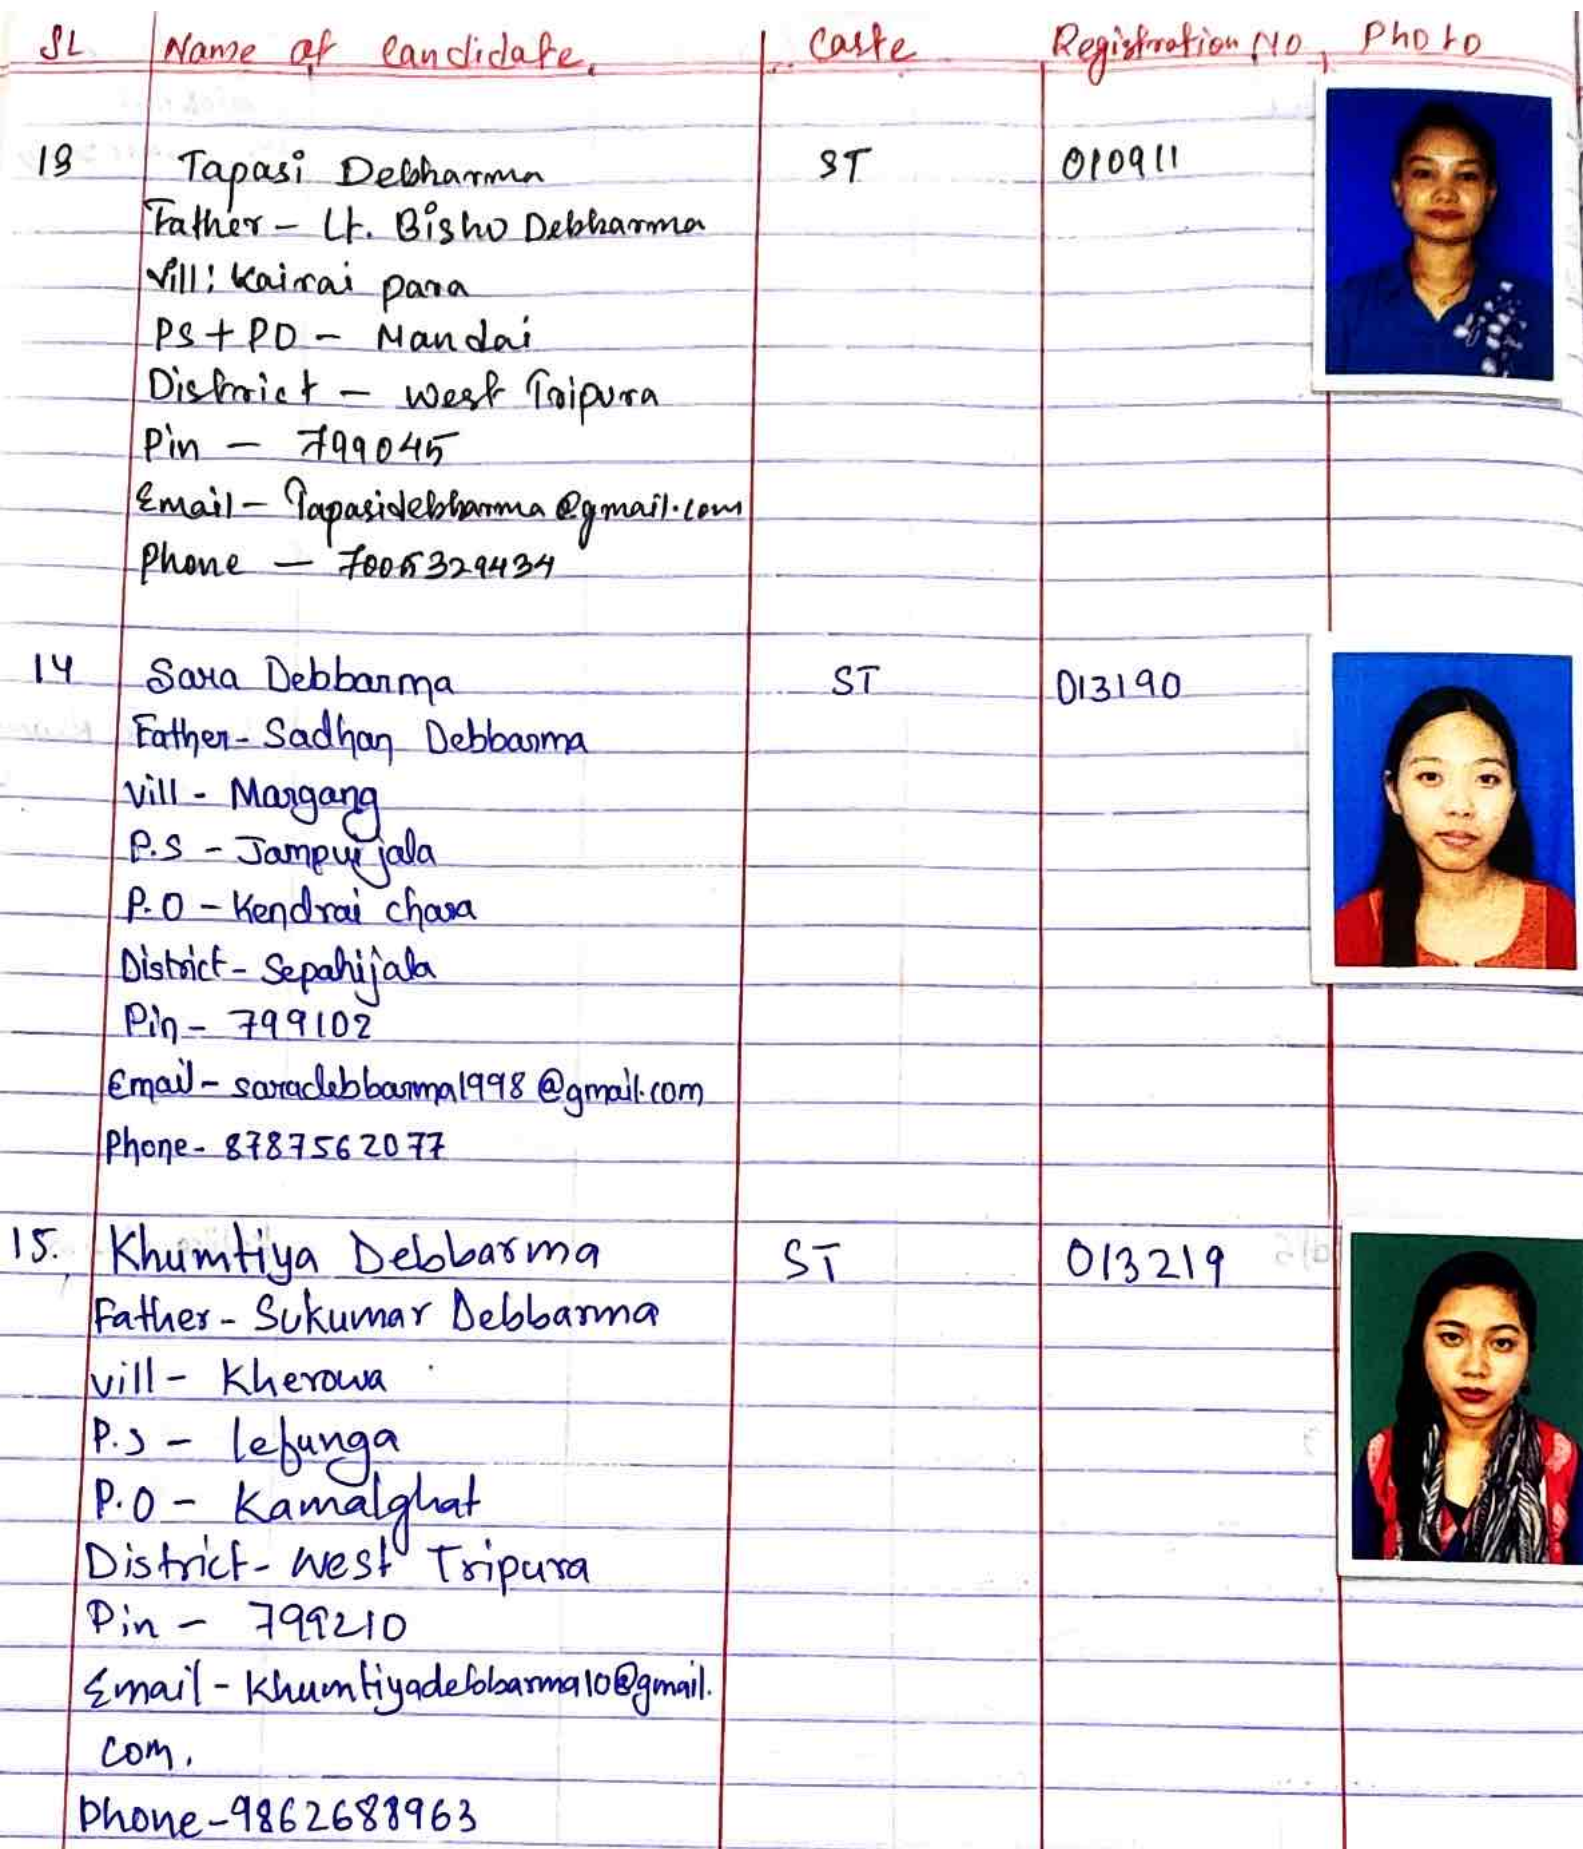 SL Name of Candidate. Caste Registration No Photo
13 Tapasi Debbarma ST 010911
Father - Lt. Bisho Debbarma
Vill: Kairai para
PS + PO - Mandai
District - West Tripura
Pin - 799045
Email - Tapasidebbarma@gmail.com
Phone - 7005329434
14 Sara Debbarma ST 013190
Father - Sadhan Debbarma
Vill - Margang
P.S - Jampui jala
P.O - Kendrai chara
District - Sepahijala
Pin - 799102
Email - saradebbarma1998@gmail.com
Phone - 8787562077
15. Khumtiya Debbarma ST 013219
Father - Sukumar Debbarma
vill - Kherowa
P.S - lefunga
P.O - Kamalghat
District - West Tripura
Pin - 799210
Email - Khumtiyadebbarma10@gmail.
com.
Phone - 9862688963